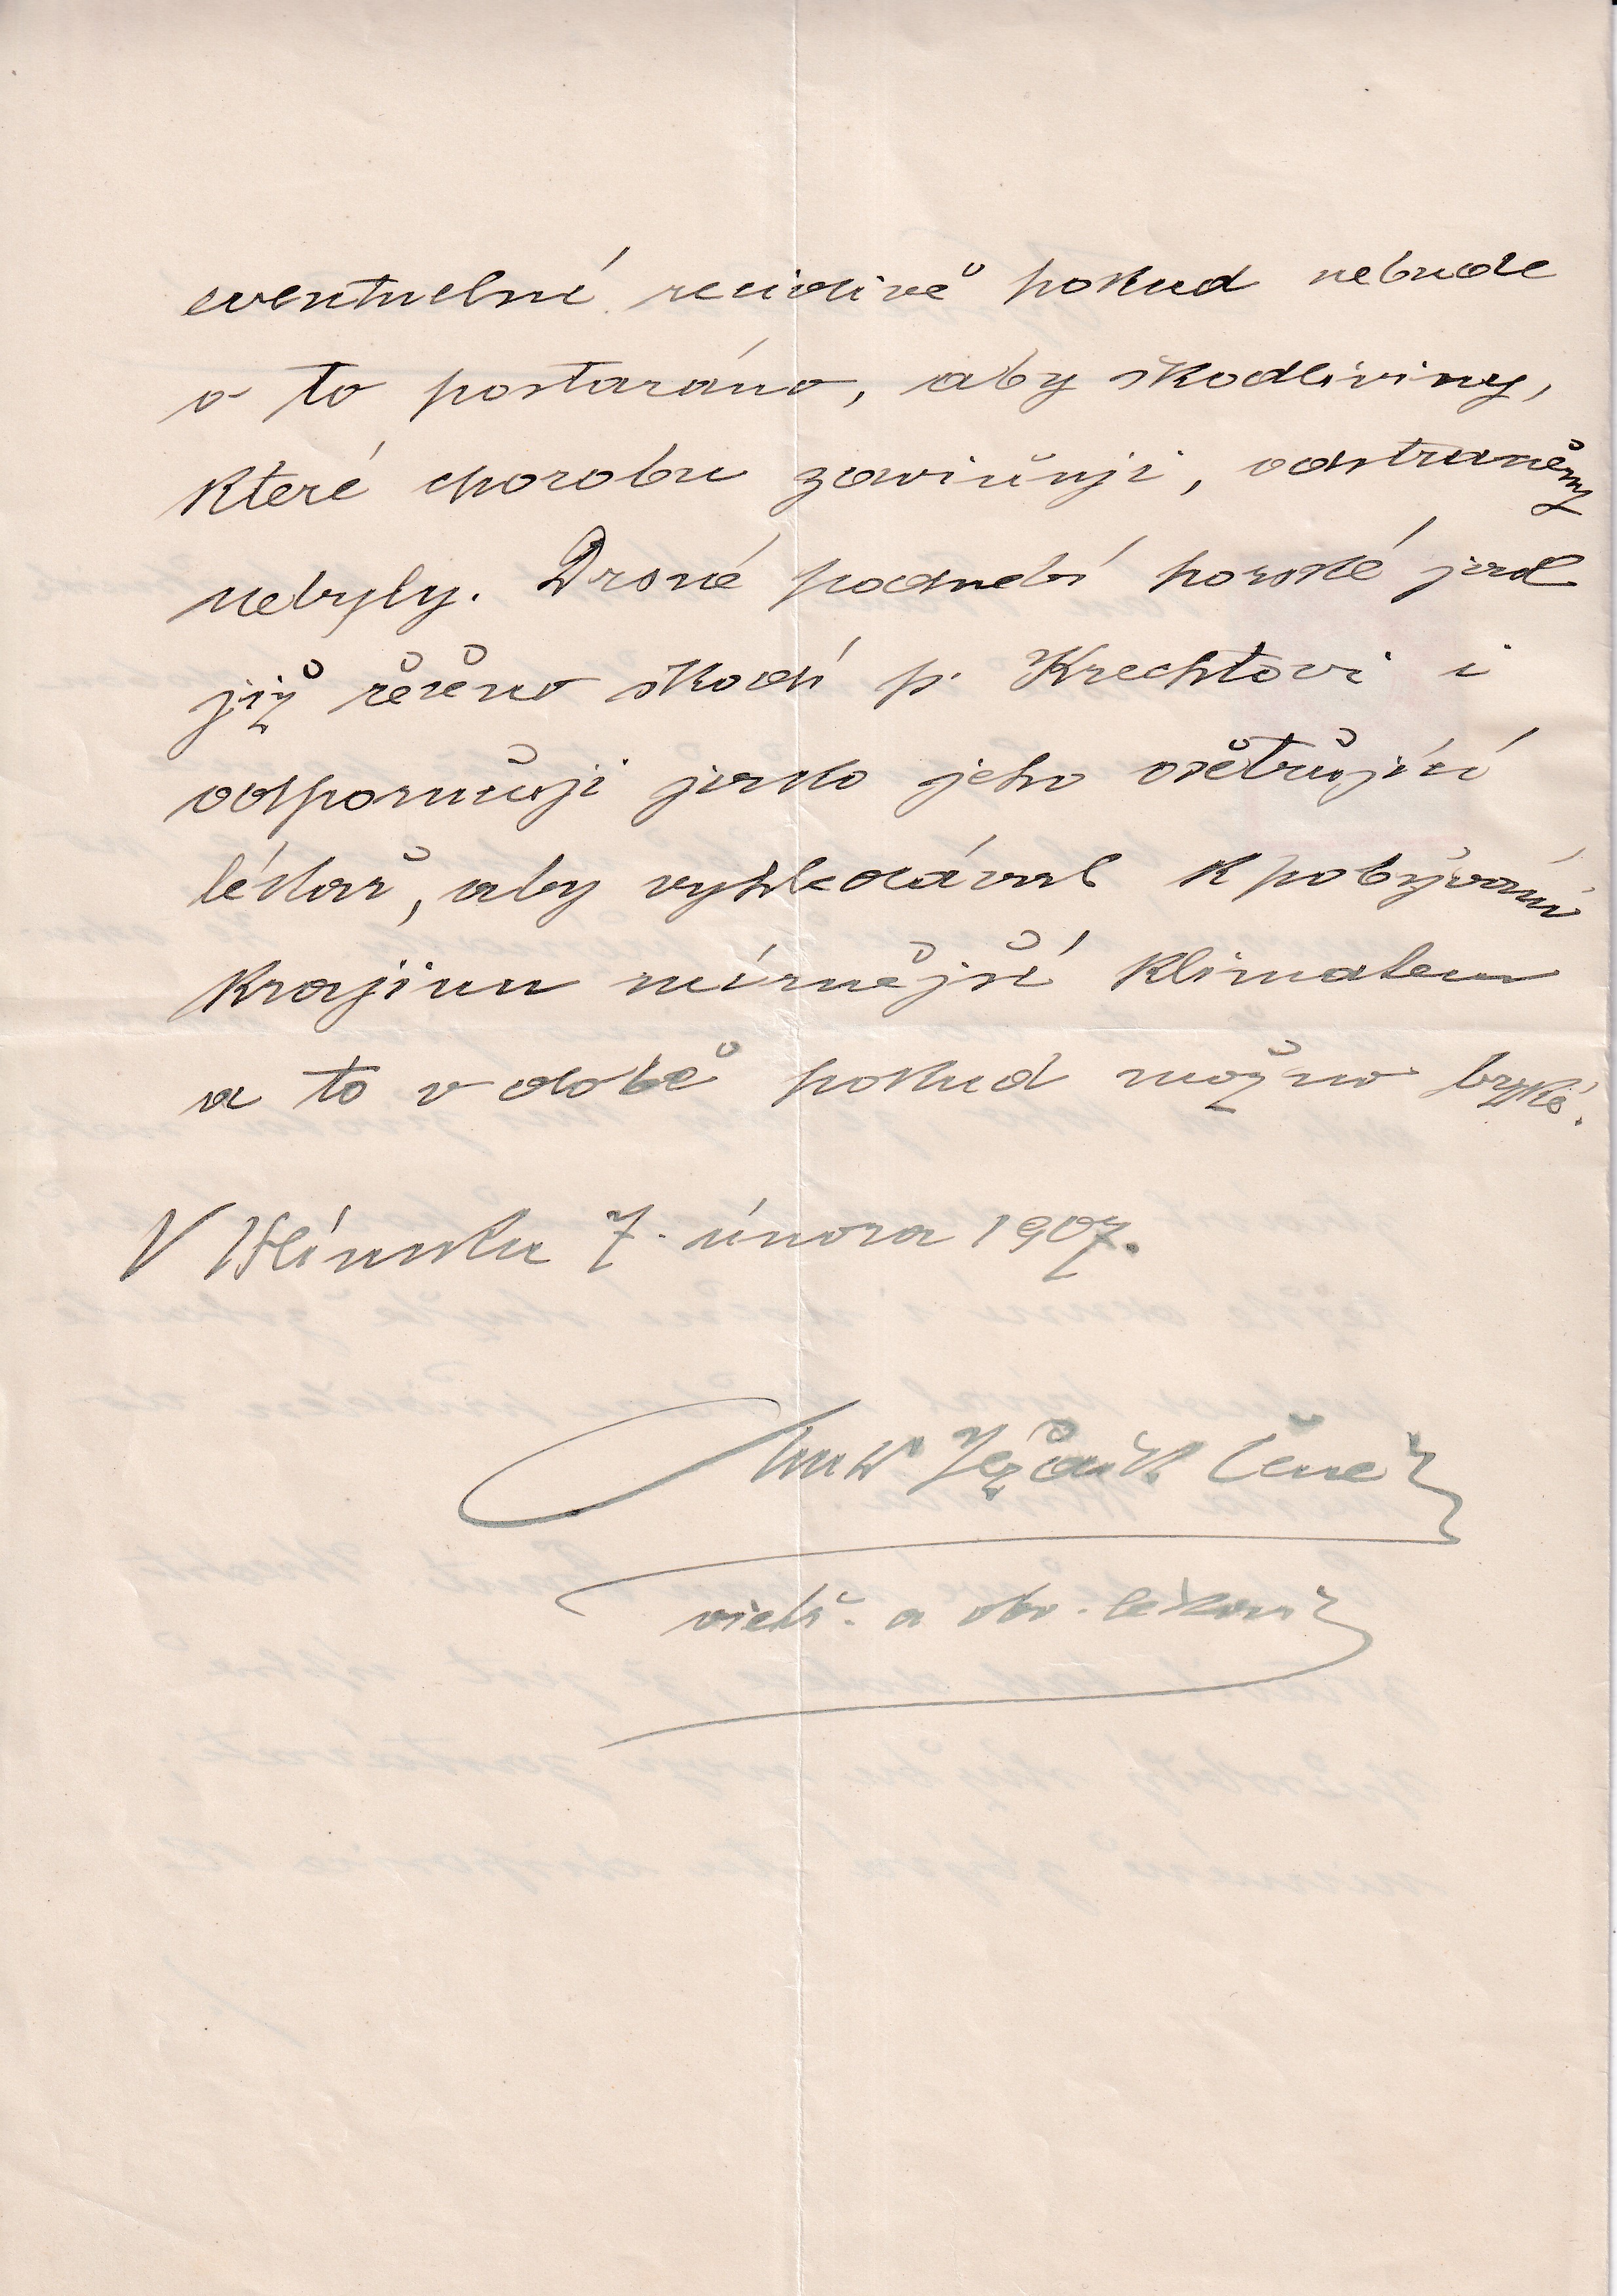 eventuelní recidivě pokud nebude
o to postaráno, aby škodliviny,
které chorobu zaviňují, odstraněny
nebyly. Drsné podnebí horské jak
již řečeno škodí p. Krechtovi i
odporučuji jako jeho ošetřující
lékař, aby vyhledával k pobývání
krajinu mírnější klimatem
a to v době pokud možno brzké.
V Hlínsku 7. února 1907.
Čeněk
a obv. lékař